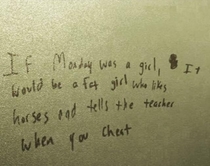 If Monday was a girl, It
would be a fat girl who likes
horses and tells the teacher
when you cheat